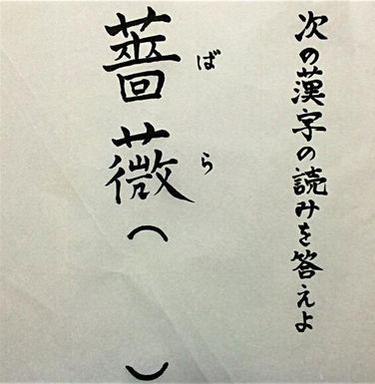 次の漢字の読みを答えよ
薔薇（　　　）
ばら